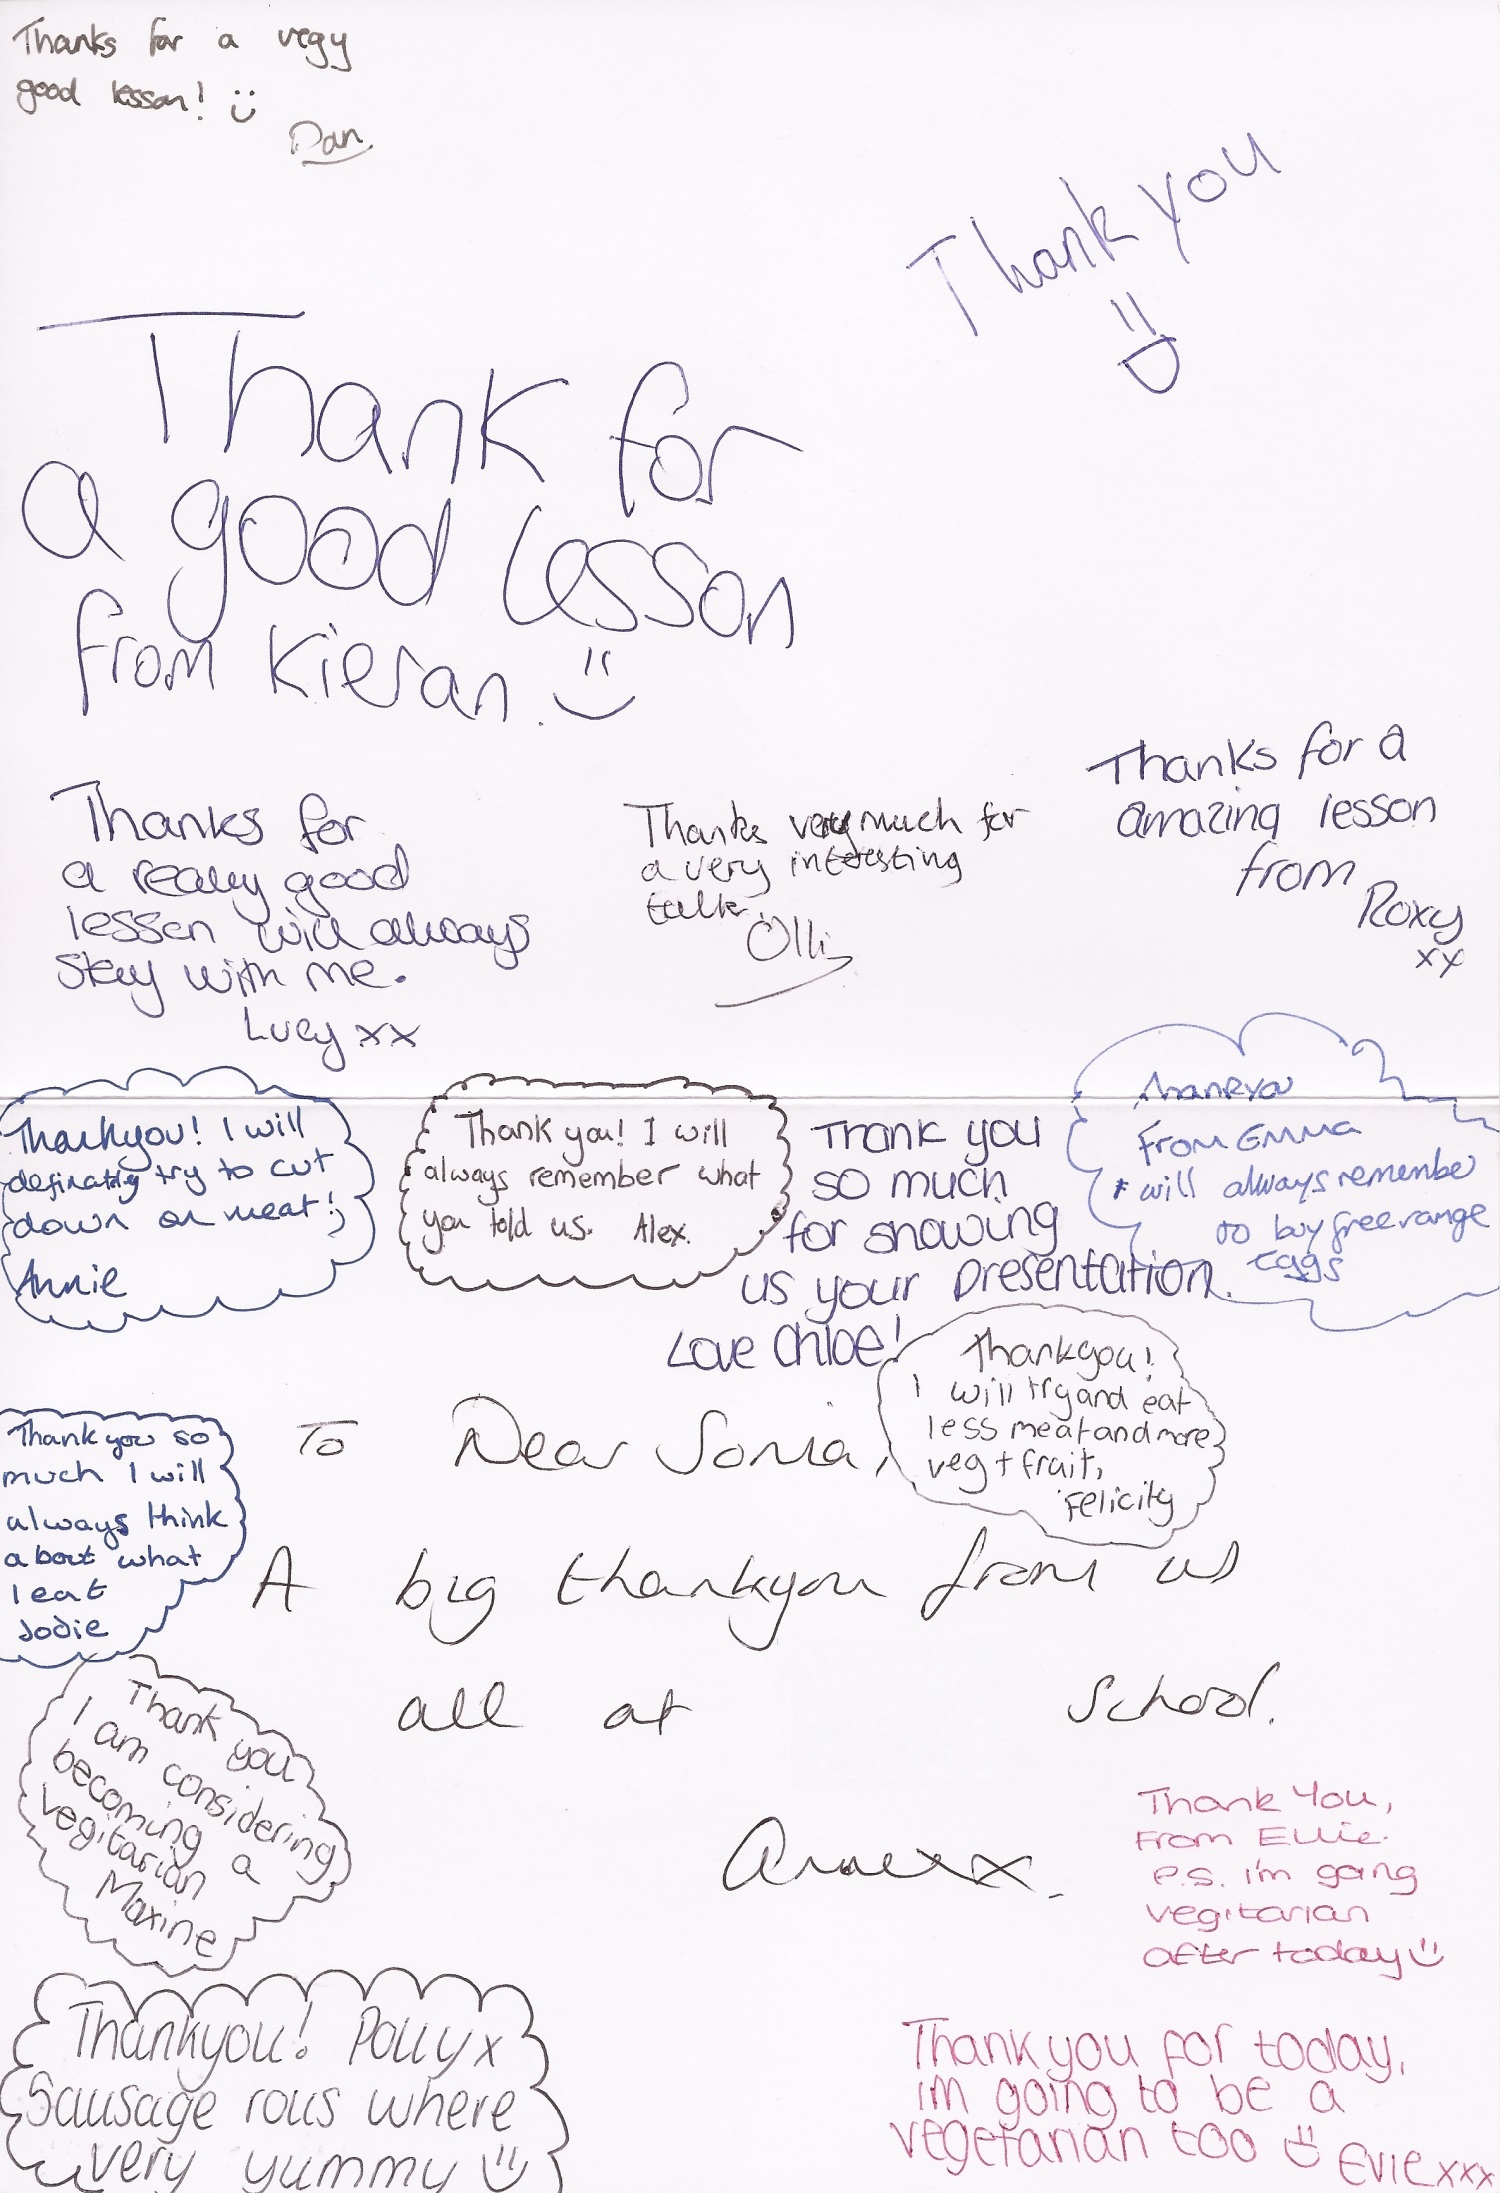 Thanks for a vegy
good lesson! :)
Dan
Thank you
:)
Thank for
a good lesson
from Kieran. :)
Thanks for
a really good
lesson will always
stay with me.
Lucy xx
Thanks very much for
a very interesting
talk.
Olli
Thanks for a
amazing lesson
from
Roxy
xx
Thankyou! I will
definatly try to cut
down on meat!;)
Annie
Thank you! I will
always remember what
you told us. Alex.
Thank you
so much
for showing
us your presentation.
Love Chloe!
Thankyou
From Emma
will always remember
to buy free range
eggs
Thankyou!
I will try and eat
less meat and more
veg + fruit,
Felicity
Thank you so
much I will
always think
about what
I eat
Jodie
To Dear Sonia,
A big thankyou from us
all at School.
Anne xx.
Thank you
I am considering
becoming a
vegitarian
Maxine
Thank You,
From Ellie.
P.S. I'm going
vegitarian
after today :)
Thankyou! Polly x
Sausage rolls where
very yummy :)
Thank you for today,
im going to be a
vegetarian too :) Evie xxx